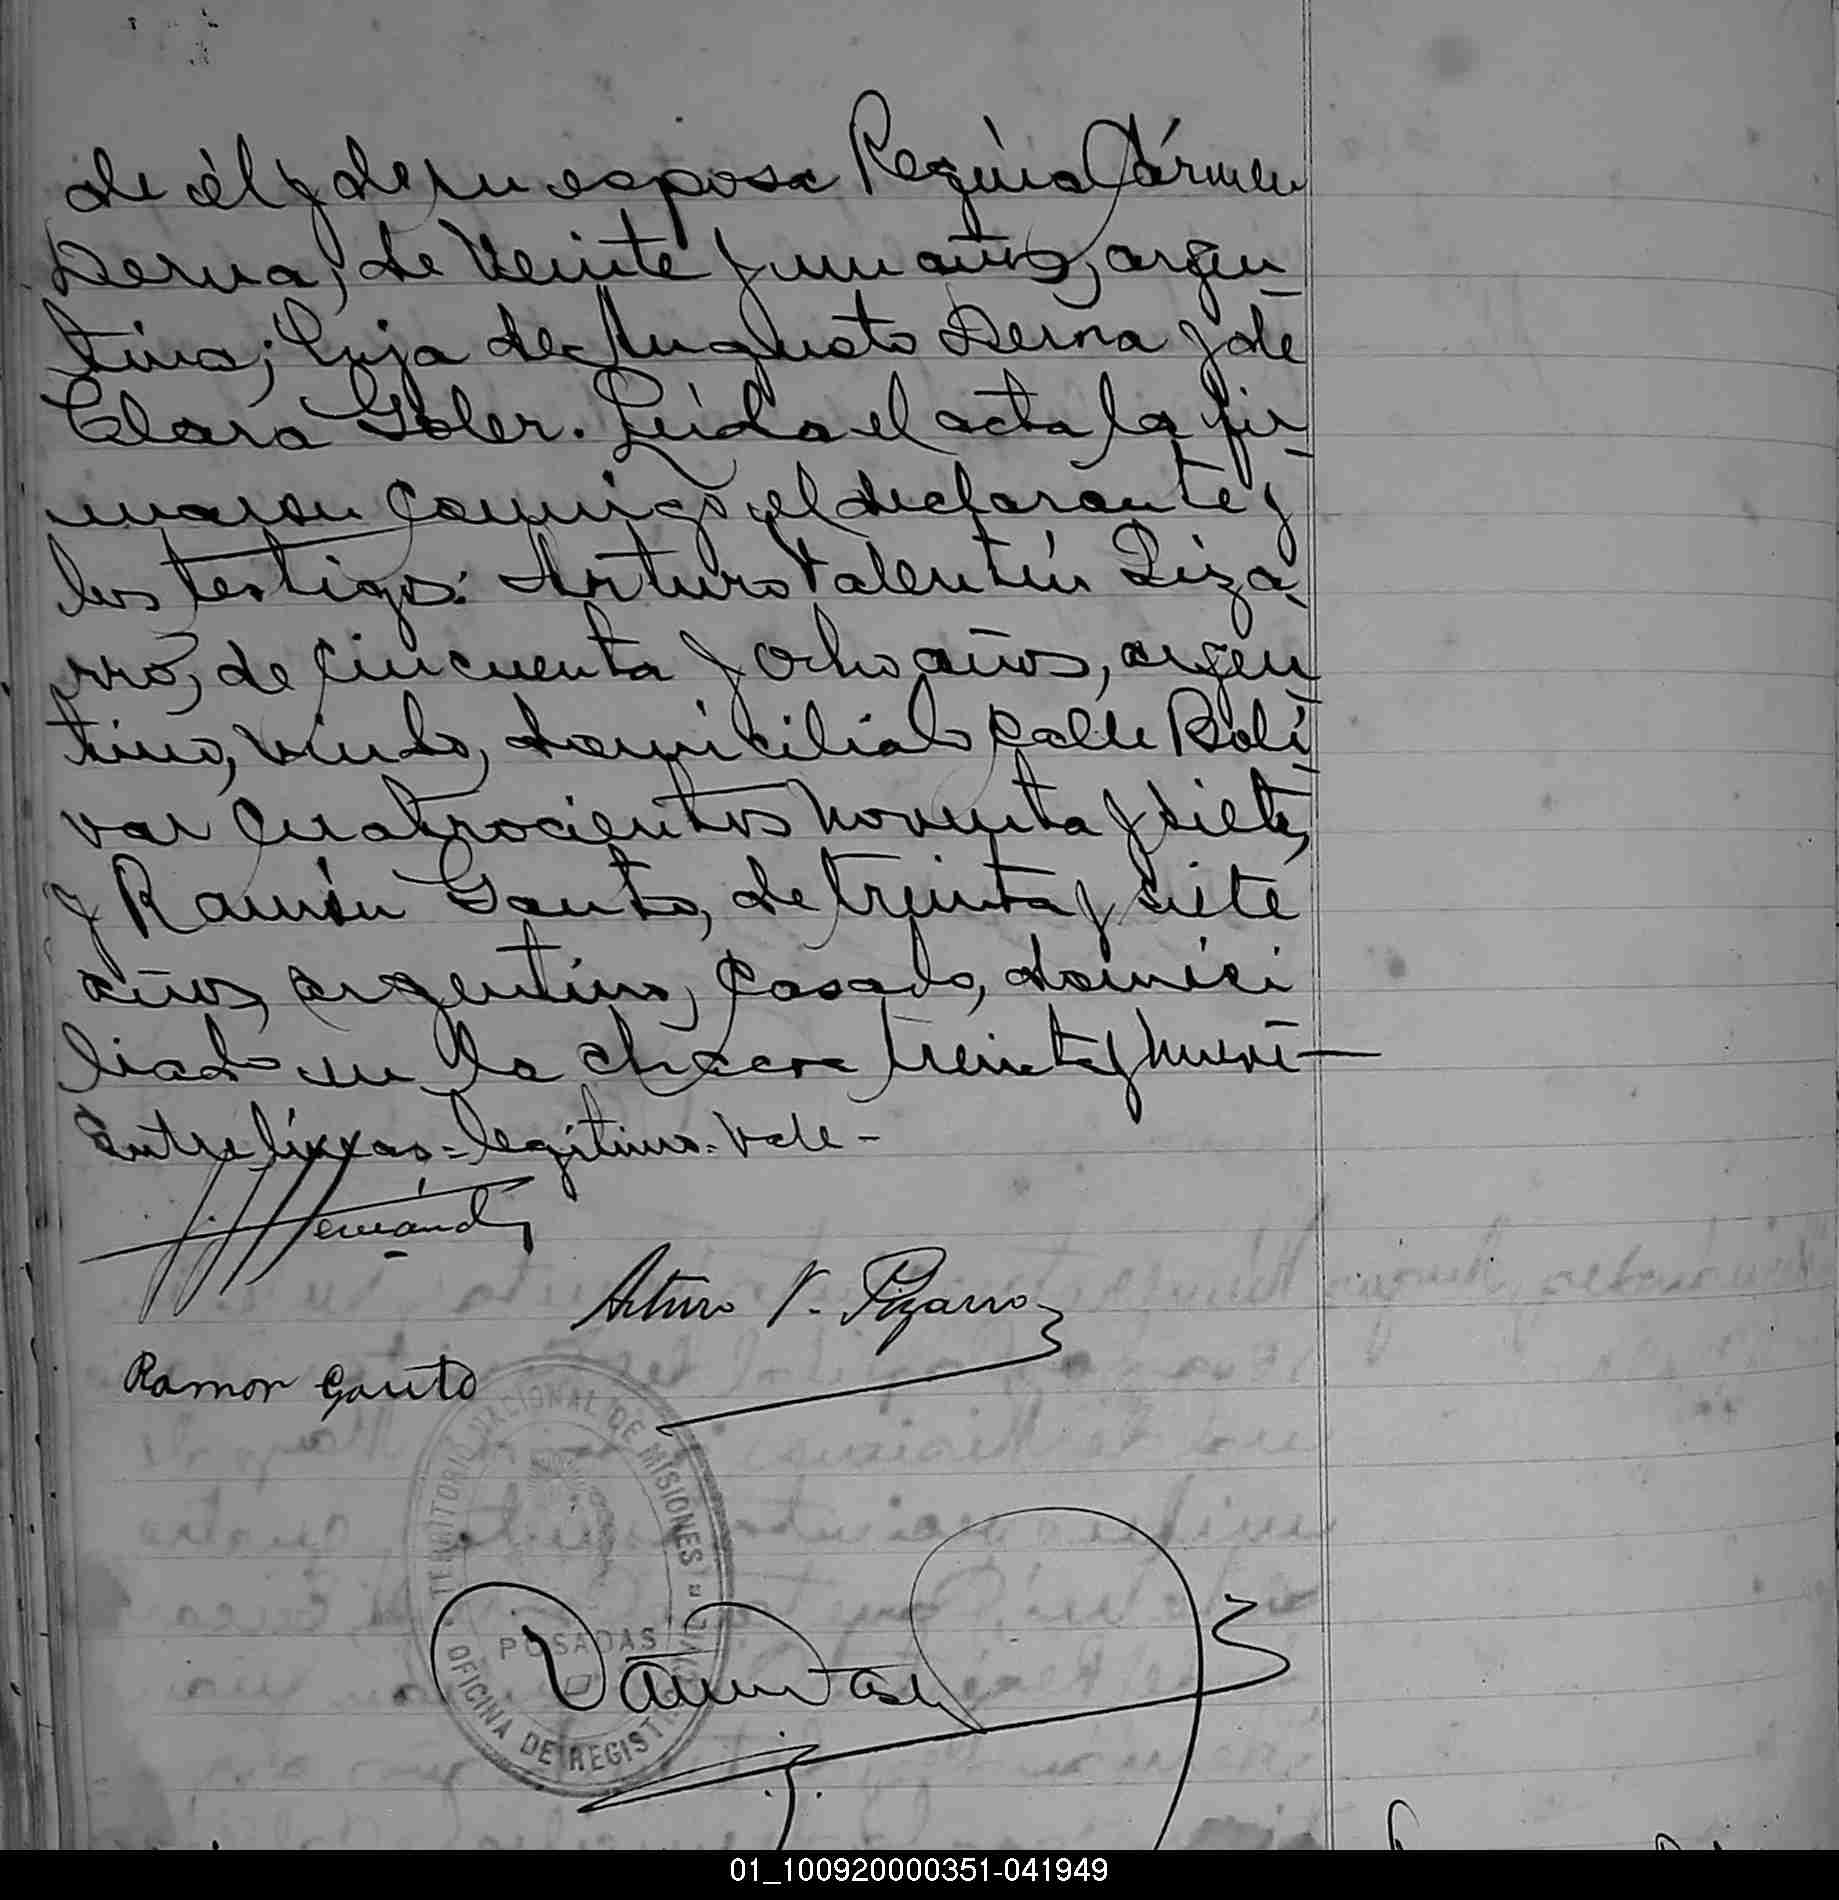 de él y de su esposa Regina Cármen
Derna, de veinte y un años, argen-
tina; hija de Augusto Derna y de
Clara Soler. Leída el acta la fir-
maron conmigo, el declarante y
los testigos: Arturo Valentín Piza-
rro, de cincuenta y ocho años, argen-
tino, viudo, domiciliado calle Bolí-
var cuatrocientos noventa y siete,
y Ramón Gauto, de treinta y siete
años, argentino, casado, domici
liado en la chacra treinta y nueve—
Entre líneas = legítimo. Vale-
Hernández
Arturo V. Pizarro
Ramon Gauto
TERRITORIO NACIONAL DE MISIONES
POSADAS
OFICINA DE REGISTRO CIVIL
01_100920000351-041949